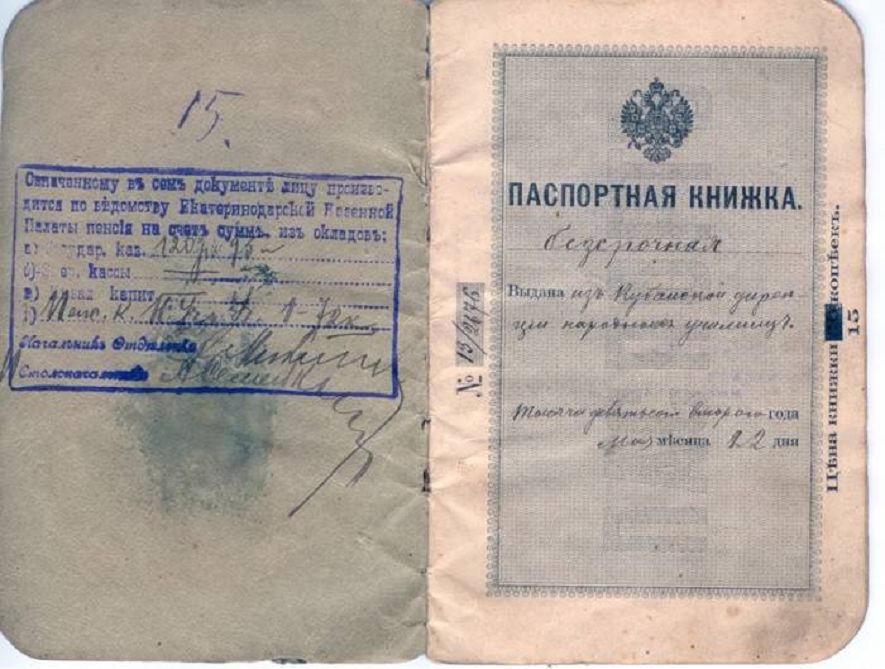 15.
Означенному въ семъ документѣ лицу произво-
дится по вѣдомству Екатеринодарской Казенной
Палаты пенсія на счетъ суммъ, изъ окладовъ:
а) Государ. каз. 120 р. 95
б) кассы
в) капит.
г)
Начальникъ Отдѣленія
Столоначальникъ
ПАСПОРТНАЯ КНИЖКА.
безсрочная
Выдана изъ Кубанской дирек-
ціи народныхъ училищъ.
Тысяча девятьсотъ второго года
мая мѣсяца 22 дня
№ 15/2676
Цѣна книжки 15 копѣекъ.